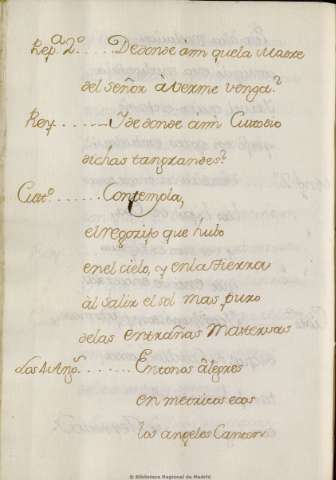 Rep.ª 2.º ..... De donde à mi que la Madre
del Señor à verme venga?
Rey ....... I de donde à mi Custodio
dichas tan grandes?
Cust.º ....... Contempla,
el regozijo que hubo
en el cielo, y en la tierra
àl salir el sol mas puro
de las entrañas Maternas
Los 4 Ang.s ..... Entonos âlegres
en metricos ecos
los angeles Canten
© Biblioteca Regional de Madrid